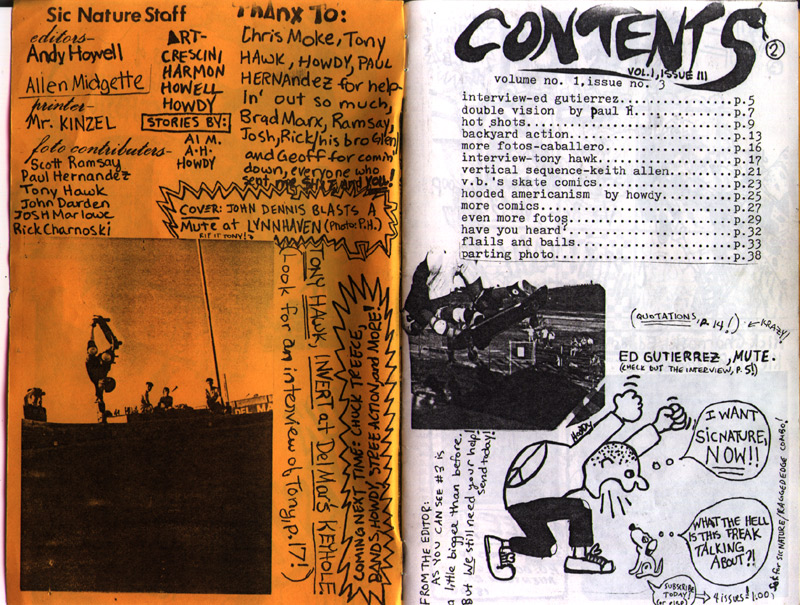 Sic Nature Staff
editors-
Andy Howell
Allen Midgette
printer-
Mr. KINZEL
foto contributors-
Scott Ramsay
Paul Hernandez
Tony Hawk
John Darden
JOSH Marlowe
Rick Charnoski
ART-
CRESCINI
HARMON
HOWELL
HOWDY
STORIES BY:
Al M.
A.H.
HOWDY
THANX TO:
Chris Moke, Tony
HAWK, HOWDY, PAUL
HERNANDEZ for help
In' out so much,
Brad Marx, Ramsay,
Josh, Rick/his bro Glen/
and Geoff for comin'
down, everyone who
sent me stuff, and YOU!
COVER: JOHN DENNIS BLASTS A
Mute at LYNNHAVEN (Photo: P.H.)
RIP IT TONY!
TONY HAWK, INVERT at Del Mar's KEYHOLE
Look for an interview of Tony, p. 17!)
COMING NEXT TIME: CHUCK TREECE,
BANDS, HOWDY, STREET ACTION, and MORE!
CONTENTS
2
VOL. 1, ISSUE III
volume no. 1, issue no. 3
interview-ed gutierrez...............p.5
double vision by paul H.............p.7
hot shots............................p.9
backyard action......................p.13
more fotos-caballero.................p.16
interview-tony hawk..................p.17
vertical sequence-keith allen........p.21
v.b.'s skate comics..................p.23
hooded americanism by howdy.........p.25
more comics..........................p.27
even more fotos......................p.29
have you heard'......................p.32
flails and bails.....................p.33
parting photo........................p.38
(QUOTATIONS, p. 14!) ← KRAZY!
ED GUTIERREZ, MUTE.
(CHECK OUT THE INTERVIEW, P. 5!)
HOWDY
I WANT
SICNATURE,
NOW!!
WHAT THE HELL
IS THIS FREAK
TALKING
ABOUT?!
SUBSCRIBE
TODAY!
→ 4 issues! 1.00!
FROM THE EDITOR:
AS YOU CAN SEE #3 is
a little bigger than before,
But we still need your help!
send today!
SICNATURE/RAGGED EDGE COMBO!